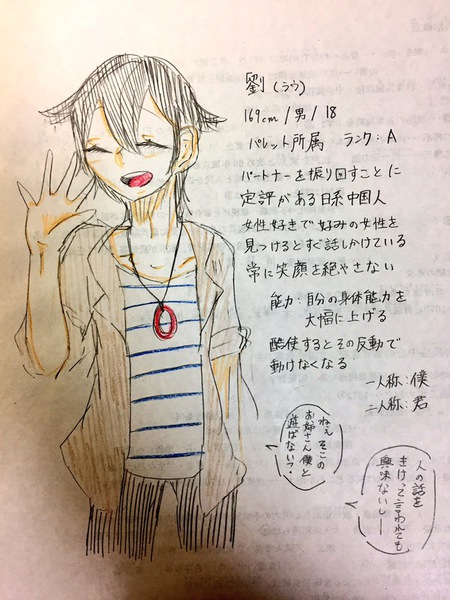 劉(ラウ)
169cm/男/18
パレット所属 ランク:A
パートナーを振り回すことに
定評がある日系中国人
女性好きで好みの女性を
見つけるとすぐ話しかけている
常に笑顔を絶やさない
能力:自分の身体能力を
大幅に上げる
酷使するとその反動で
動けなくなる
一人称:僕
二人称:君
ねぇそこの
お姉さん僕と
遊ばない?
人の話を
きけって言われても
興味ないしー